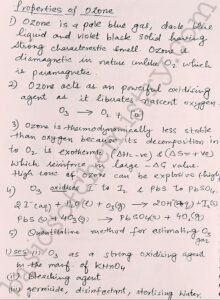 Properties of Ozone
1) Ozone is a pale blue gas, dark blue
liquid and violet black solid having
strong characteristic smell. Ozone is
diamagnetic in nature unlike O2 which
is paramagnetic.
2) Ozone acts as an powerful oxidising
agent as it liberates nascent oxygen.
O3 → O2 + [O]
3) Ozone is thermodynamically less stable
than oxygen because its decomposition in
to O2 is exothermic (ΔH=-ve) & (ΔS=+ve)
which reinforce in large -ΔG value.
High conc of ozone can be explosive (highly
4) O3 oxidises I- to I2 & PbS to PbSO4.
PbS(s) + 4O3(g) → PbSO4(s) + 4O2(g)
5) Quantitative method for estimating O3
gas
O3 as a strong oxidising agent
in the manf of KMnO4
ii) Bleaching agent
iii) germicide, disinfectant, sterilising water